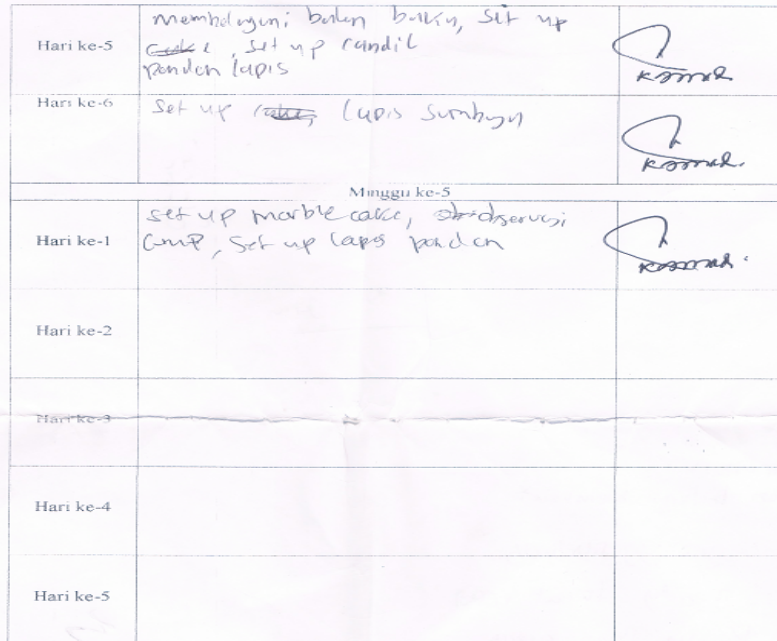 Hari ke-5
bahan baku, set up
set up candil
pandan lapis
Hari ke-6
set up lapis
Minggu ke-5
Hari ke-1
set up marble cake, observasi
GMP, set up lapis pandan
Hari ke-2
Hari ke-3
Hari ke-4
Hari ke-5